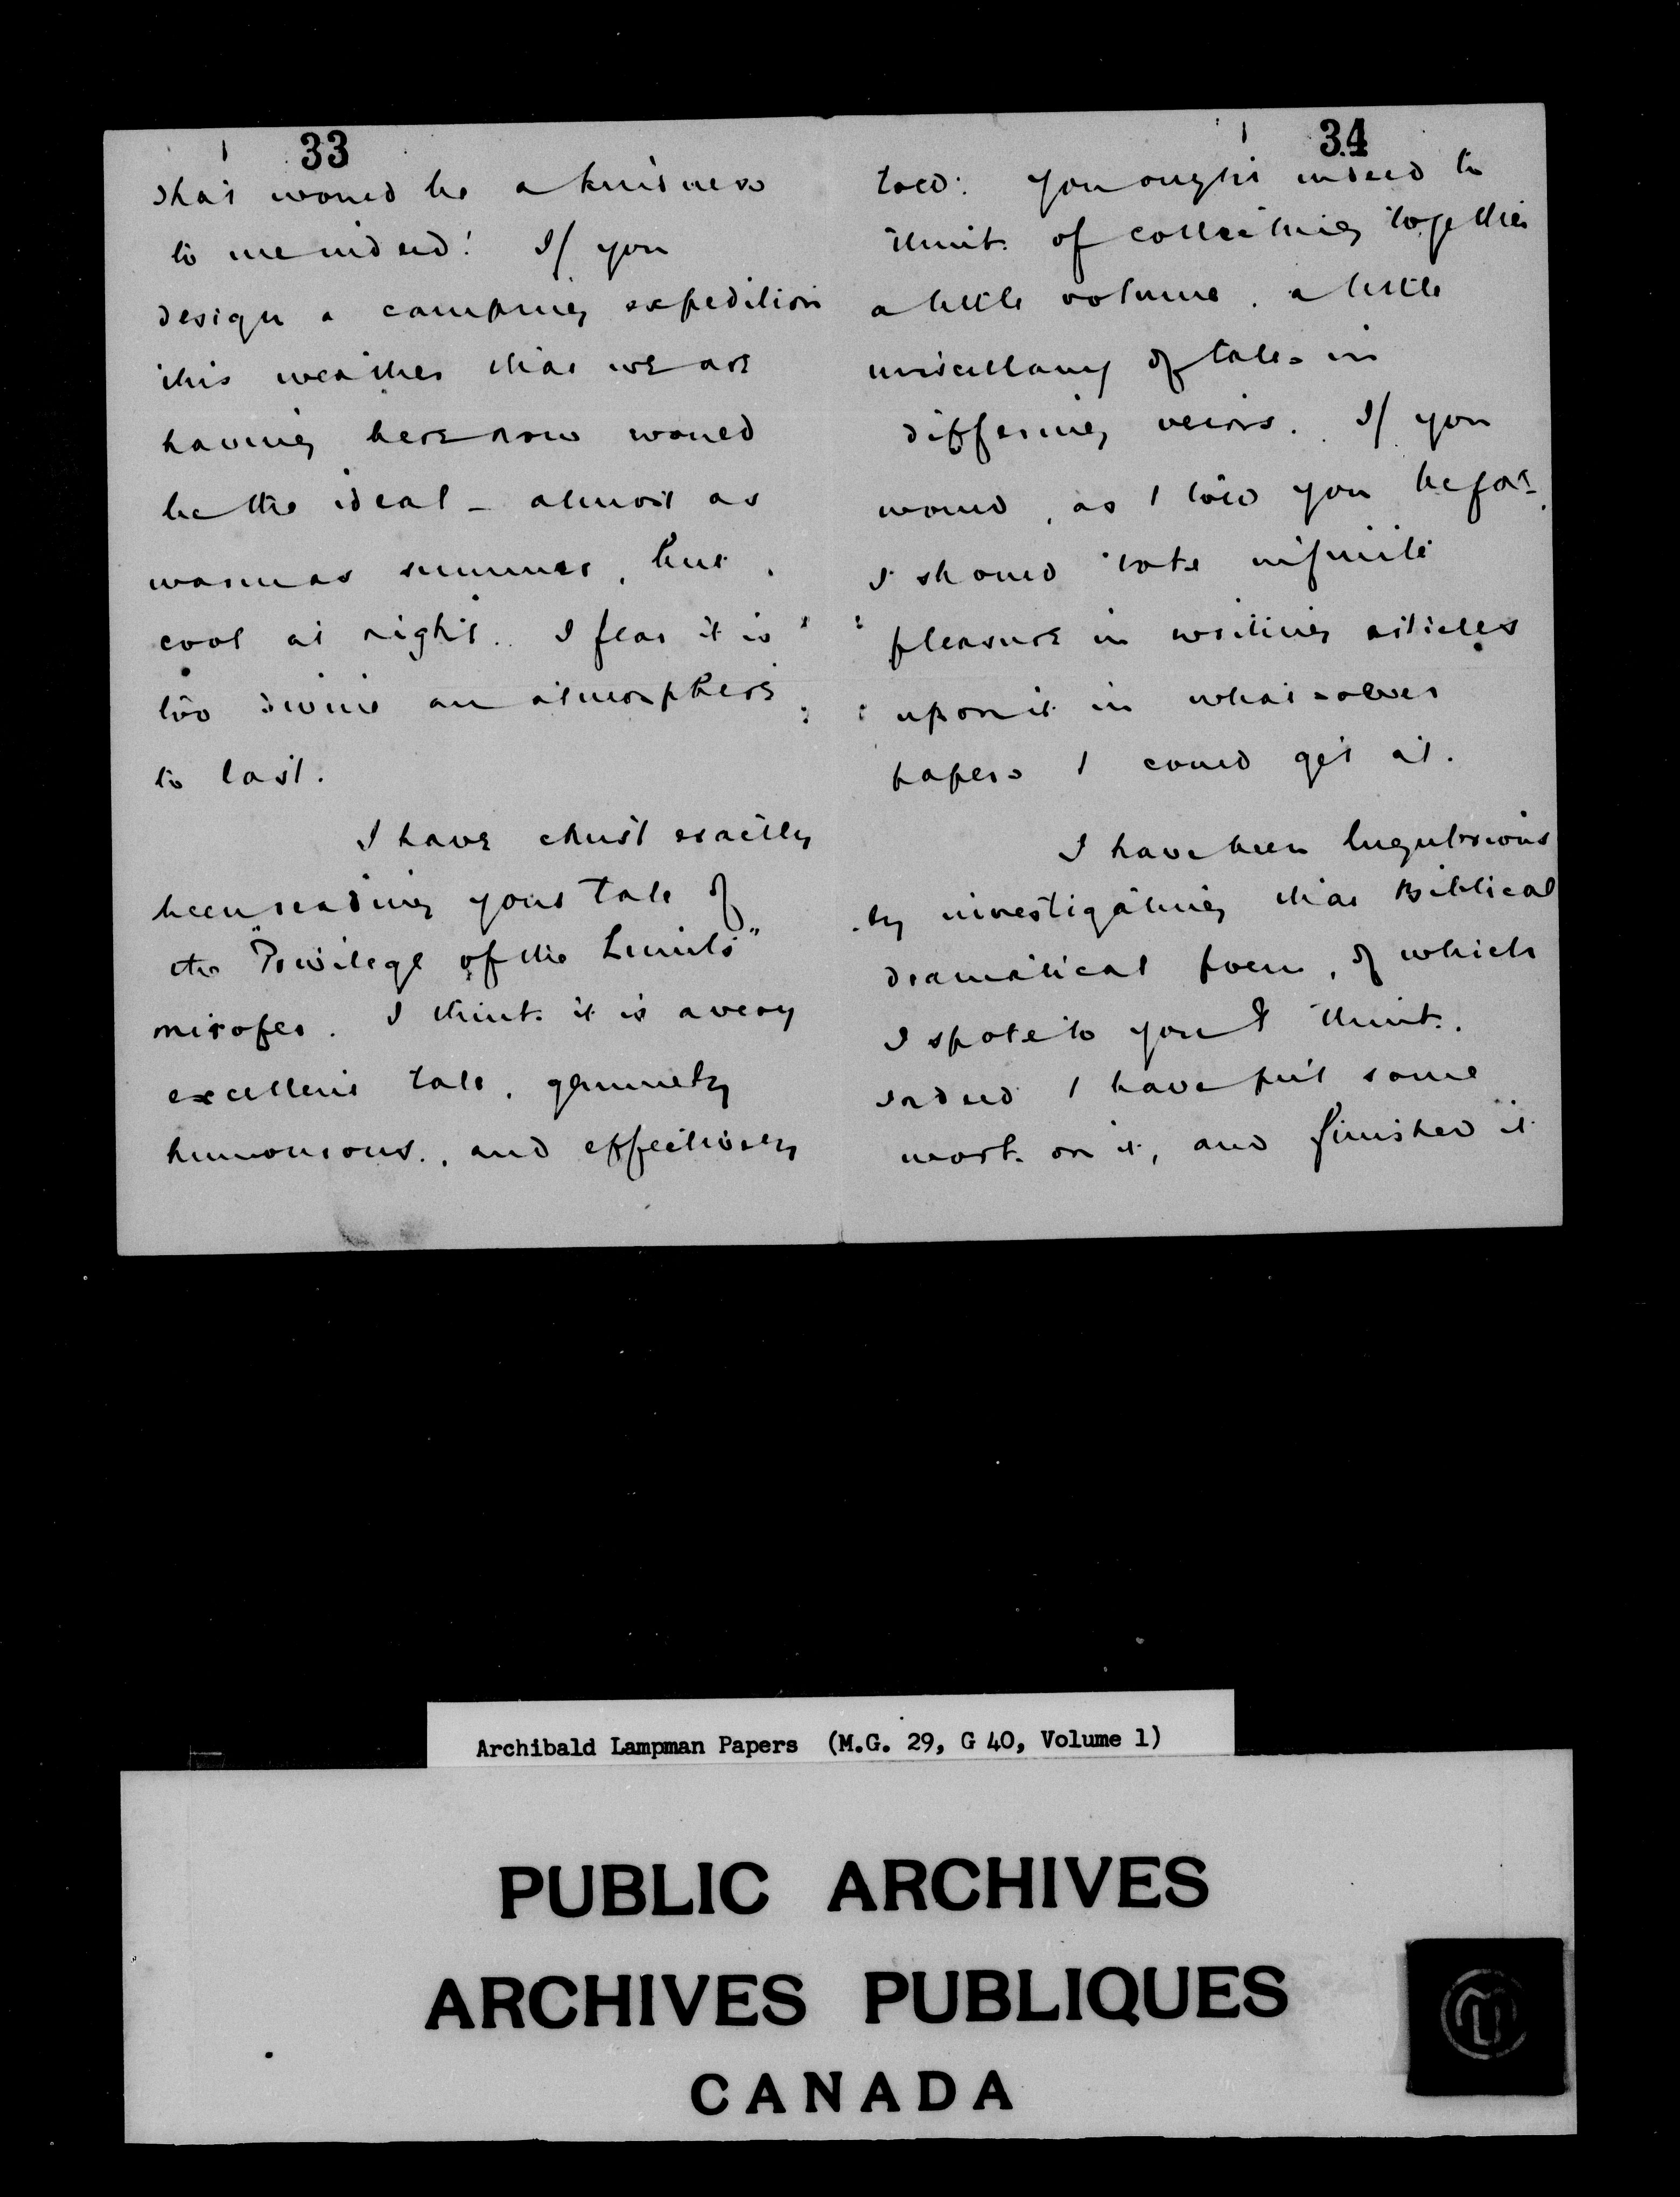 33
that would be a kindness
to me indeed! If you
design a camping expedition
this weather that we are
having here now would
be the ideal - almost as
warm as summer, but
cool at night. I fear it is
too divine an atmosphere
to last.
I have just exactly
been reading your tale of
the "Privilege of the Limits"
I think it is a very
excellent tale, genuinely
humourous, and effectively
34
told. You ought indeed to
think of collecting together
a little volume, a little
miscellany of tales in
differing veins. If you
would, as I told you before,
I should take infinite
pleasure in writing articles
upon it in whatsoever
papers I could get at.
I have been lugubrious
ly investigating that Biblical
dramatical poem, of which
I spoke to you I think.
Indeed I have put some
work on it, and finished it
Archibald Lampman Papers (M.G. 29, G 40, Volume 1)
PUBLIC ARCHIVES
ARCHIVES PUBLIQUES
CANADA